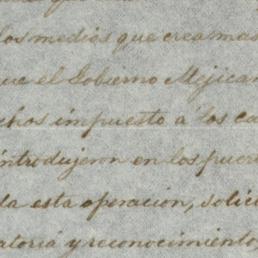 los medios que crea mas
que el Gobierno Mejican
chos impuesto á los ca
introdujeron en los puer
da esta operacion, solici
atoria y reconocimiento,